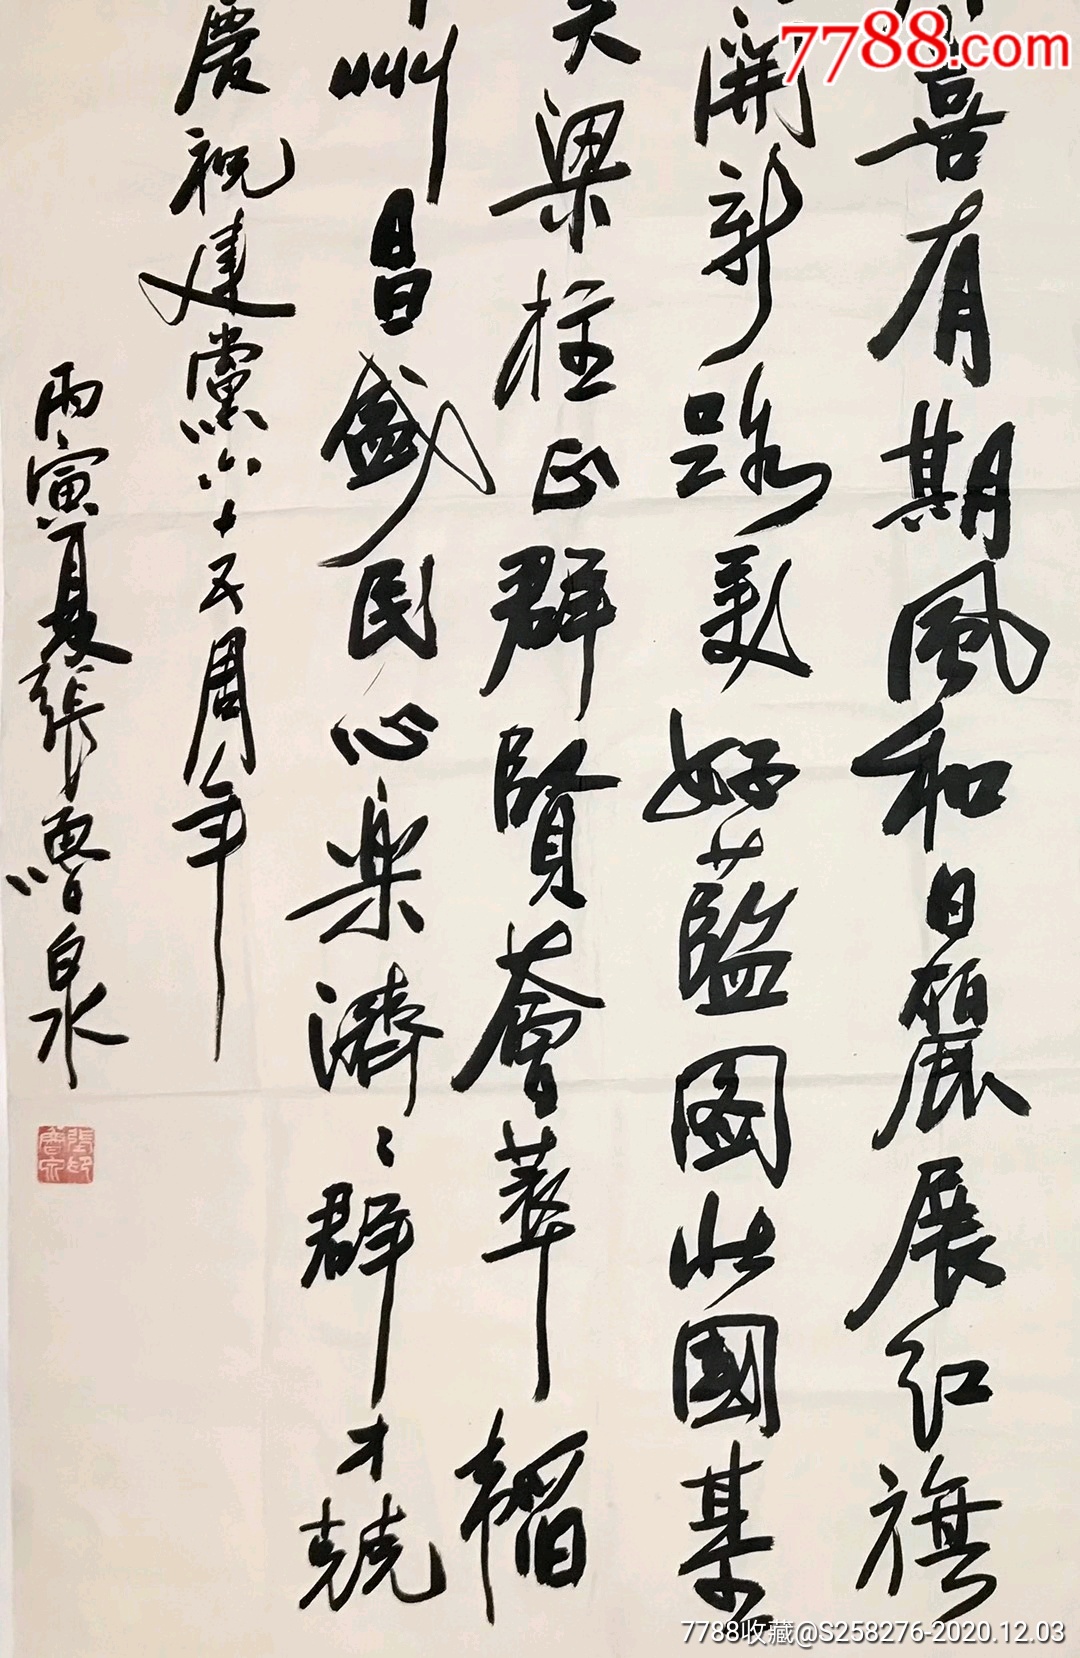 7788.com
喜有期風和日麗展紅旗
開新路美好藍圖壯國基
天梁柱正群賢薈萃韜
州昌盛民心樂濟〻群才競
慶祝建黨六十五周年
丙寅夏張魯泉
7788收藏@S258276-2020.12.03